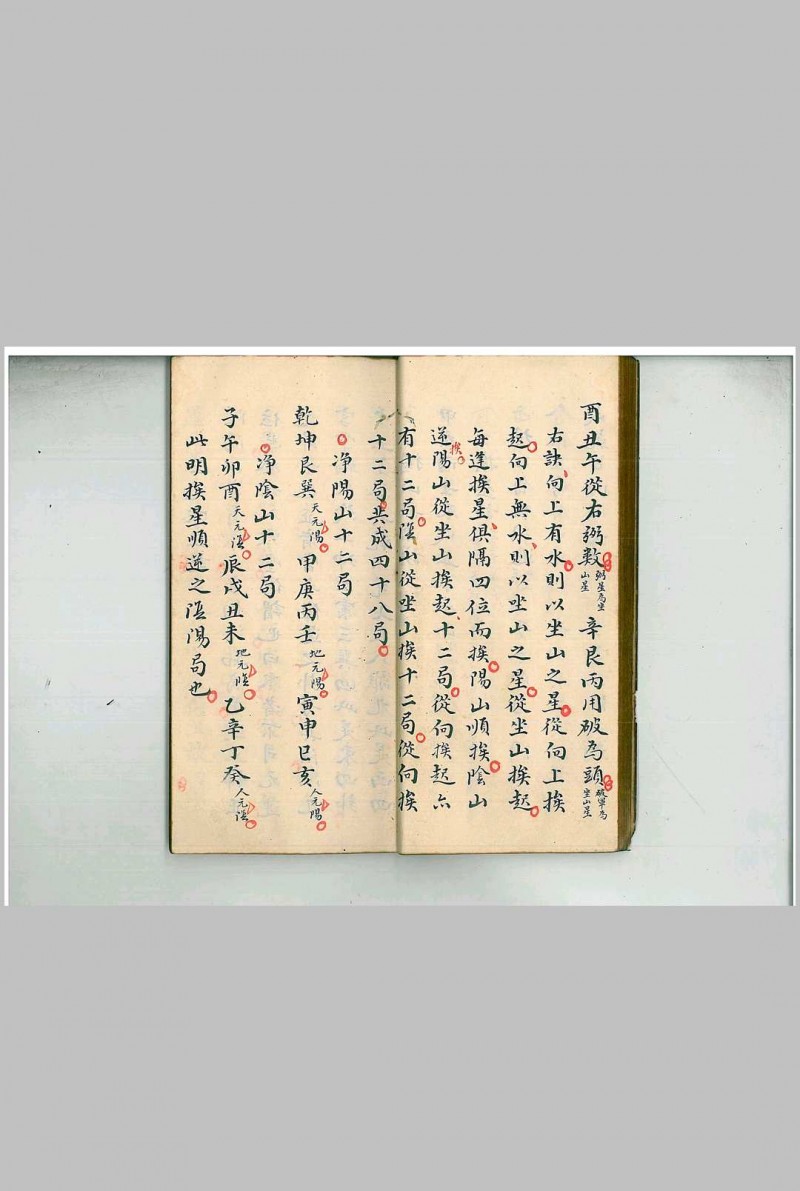 酉丑午從右弼數弼星為坐山星辛艮丙用破為頭破軍為坐山星
右訣向上有水則以坐山之星從向上挨
起向上無水則以坐山之星從坐山挨起
每逢挨星俱隔四位而挨陽山順挨陰山
逆挨陽山從坐山挨起十二局從向挨起亦
有十二局陰山從坐山挨十二局從向挨
十二局共成四十八局
淨陽山十二局
乾坤艮巽天元陽甲庚丙壬地元陽寅申巳亥人元陽
淨陰山十二局
子午卯酉天元陰辰戌丑未地元陰乙辛丁癸人元陰
此明挨星順逆之陰陽局也